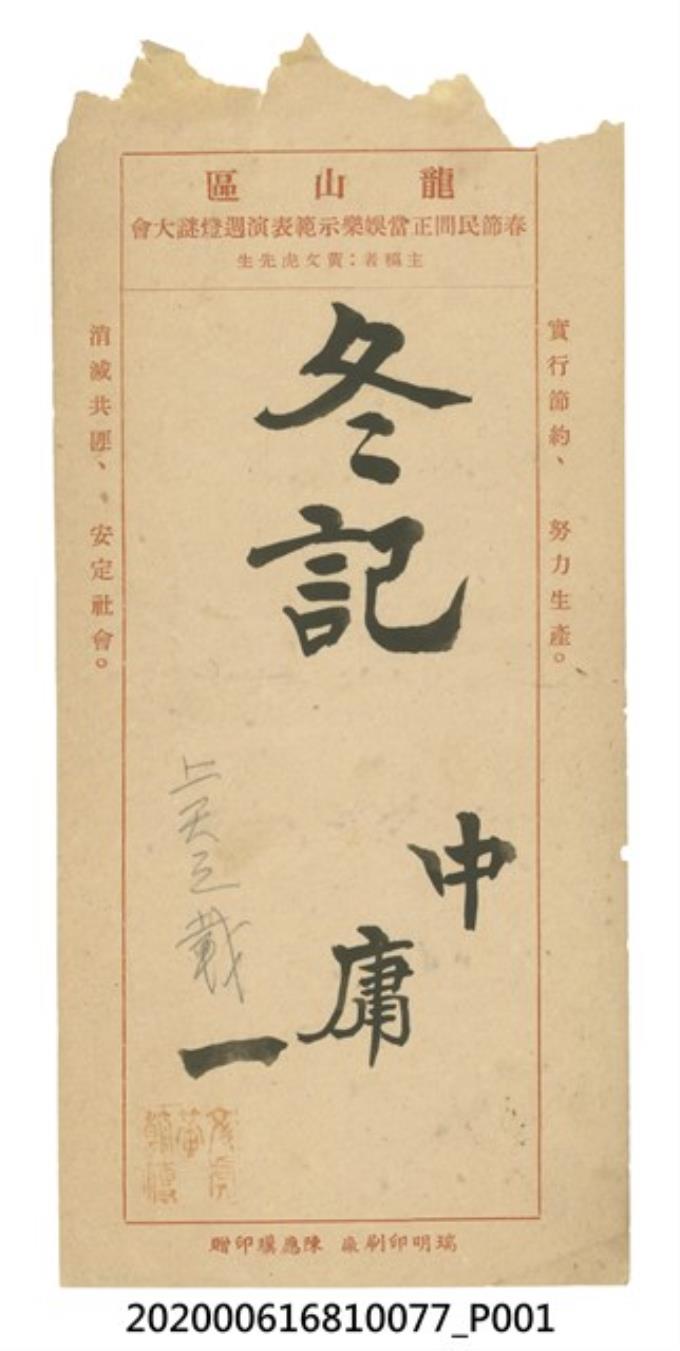 龍山區
春節民間正當娛樂示範表演週燈謎大會
主稿者：黃文虎先生
實行節約、努力生產。
冬記
中庸一
上天之載
消滅共匪、安定社會。
瑞明印刷廠 陳應環印贈
202000616810077_P001